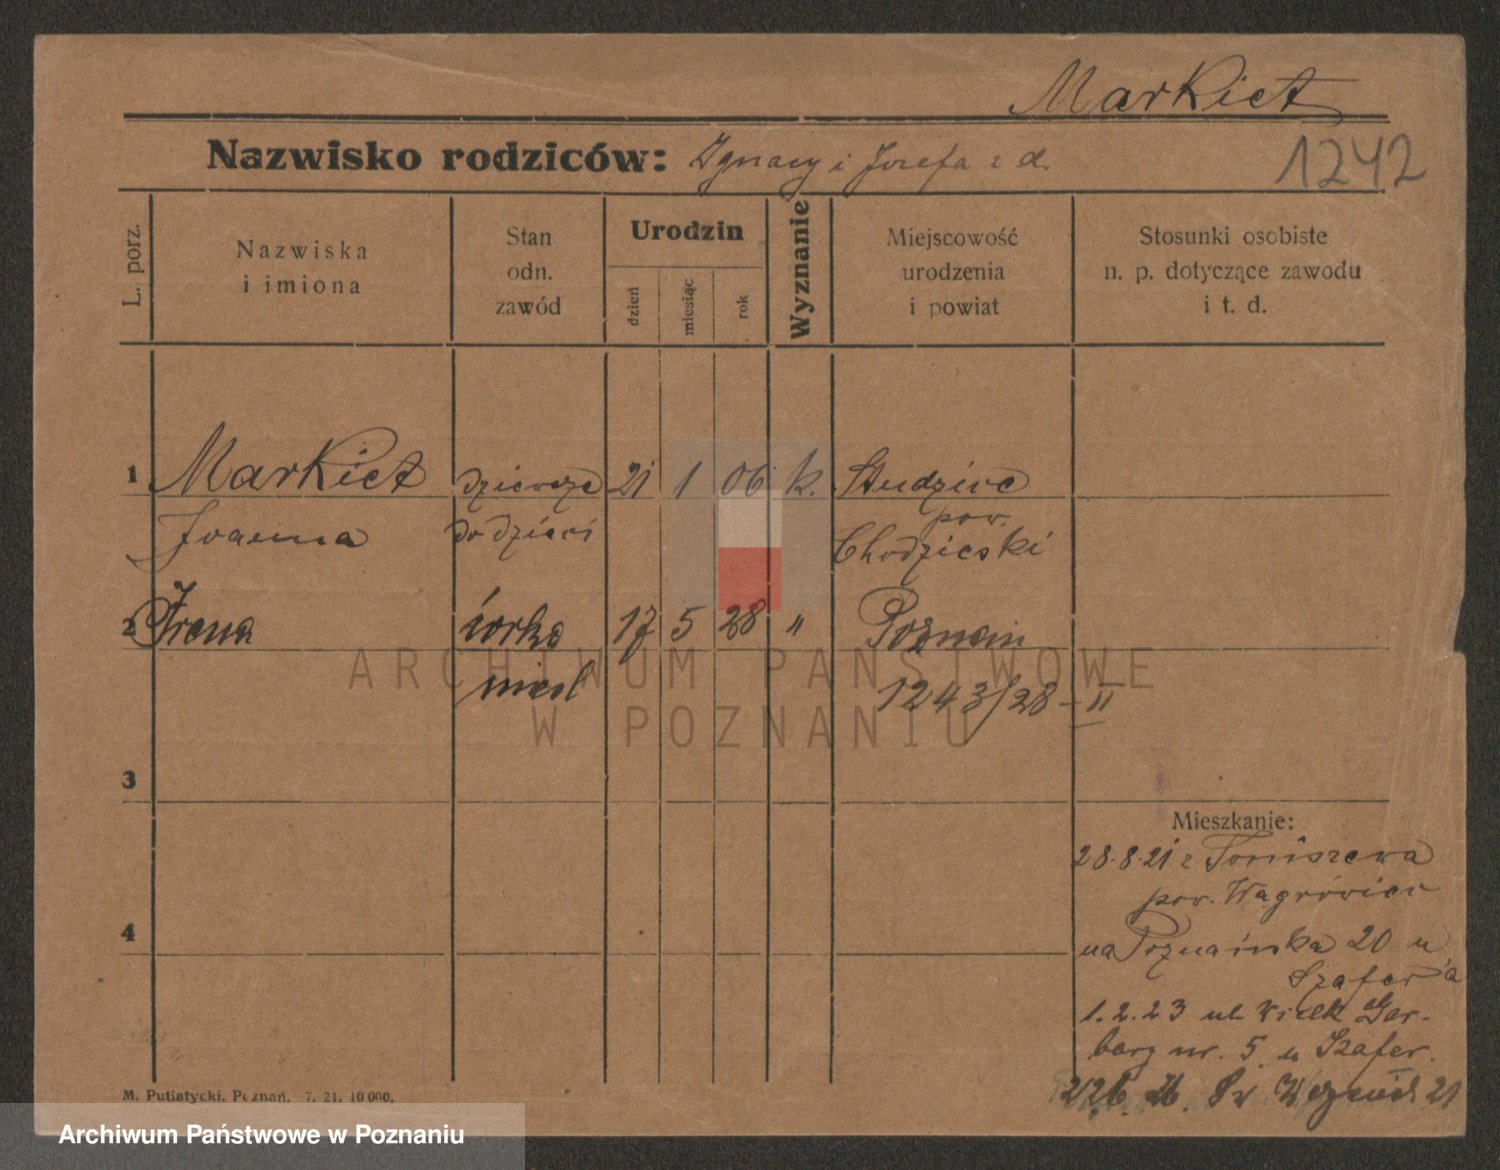 Markiet
Nazwisko rodziców: Ignacy i Jozefa z d.
1242
L. porz.
Nazwiska
i imiona
Stan
odn.
zawód
Urodzin
dzień
miesiąc
rok
Wyznanie
Miejscowość
urodzenia
i powiat
Stosunki osobiste
n. p. dotyczące zawodu
i t. d.
1 Markiet dziewczę 21 1 06 k. Studziec
Joanna do dzieci pow.
Chodzieski
2 Irena córka 17 5 28 " Poznań
nieśl 1243/28-II
ARCHIWUM PAŃSTWOWE
W POZNANIU
3
Mieszkanie:
28.8.21 z Toniszewa
pow. Wągrówiec
4
na Poznańska 20 u
Szafer'a
1.2.23 ul. Wielk Gar-
bary nr. 5 u Szafer.
Św 21
M. Putiatycki, Poznań. 7. 21. 10 000.
Archiwum Państwowe w Poznaniu